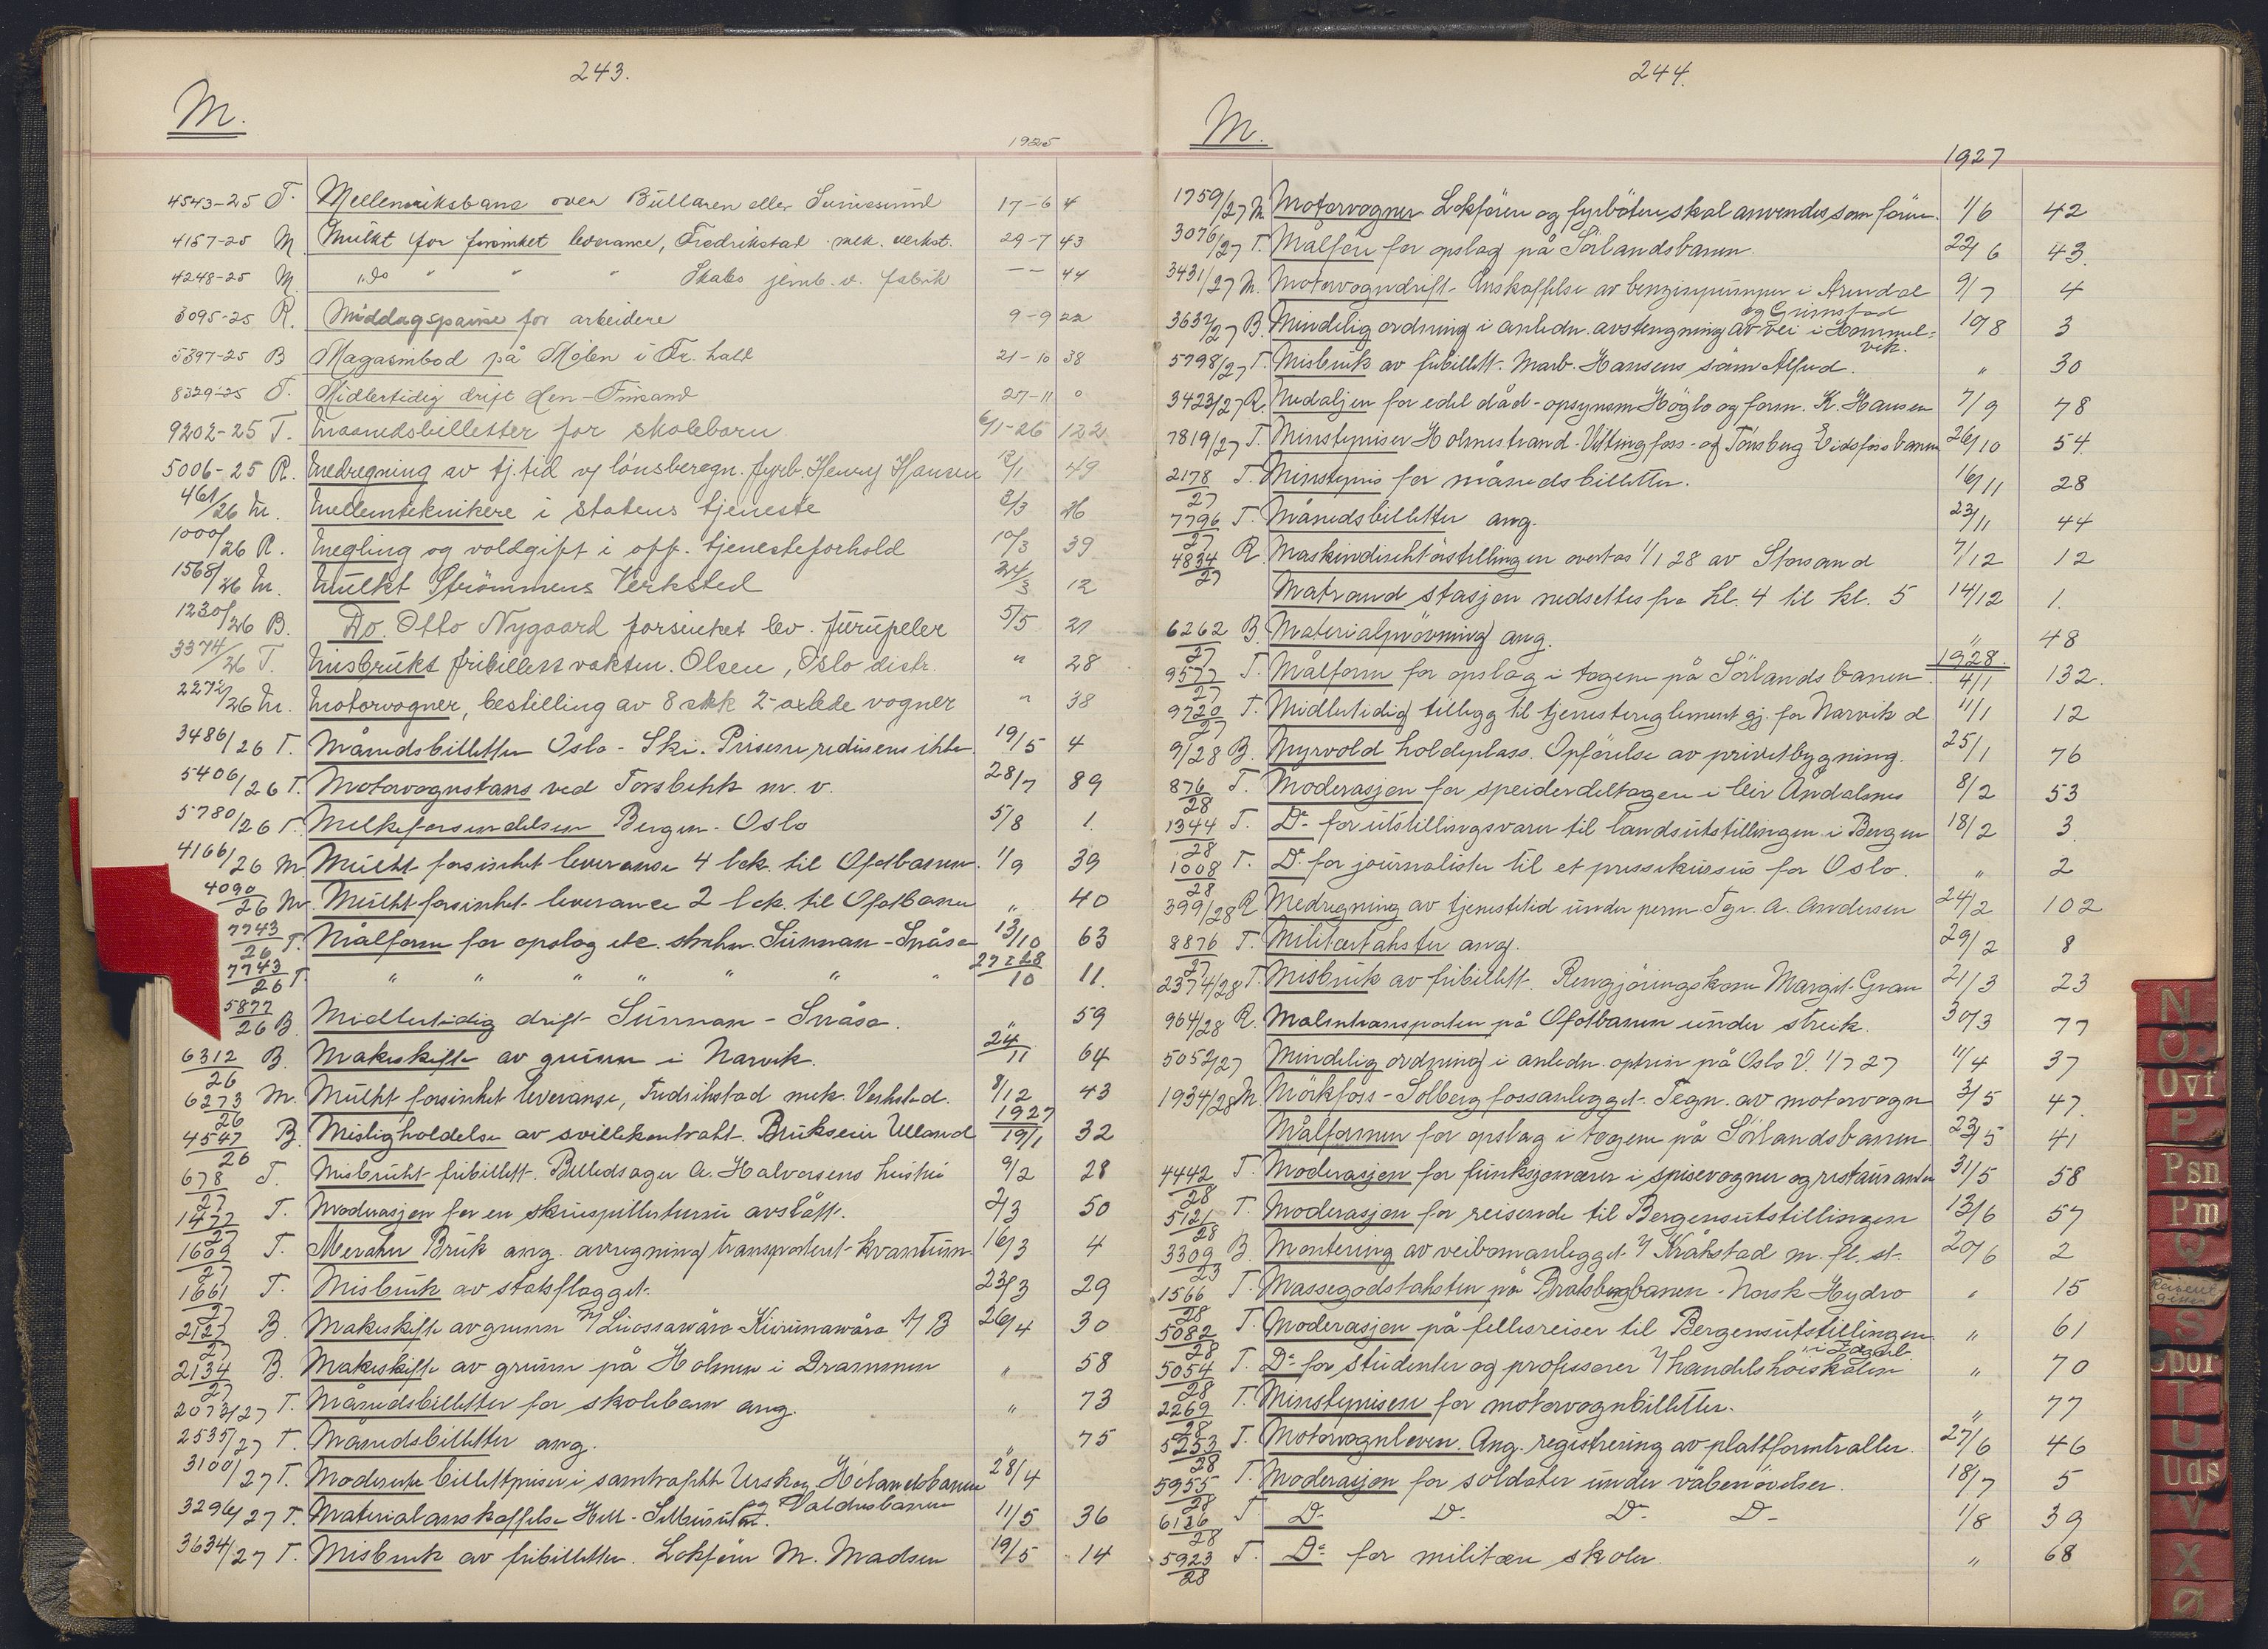 243.
M.
1925
4543-25 T. Mellemriksbane over Bullaren eller Svinesund 17-6 4
4157-25 M. Mulkt for forsinket leverance, Fredrikstad mek. verkst. 29-7 43
4248-25 M. "do " " " Skabo jernb.v. fabrik — — 44
3095-25 R. Middagspause for arbeidere 9-9 22
5397-25 B Magasinbod på Mølen i Fr.hald 21-10 38
8329-25 T. Midlertidig drift Hen-Finsand 27-11 0
9202-25 T. Maanedsbilletter for skolebarn 6/1-26 122
5006-25 R. Medregning av tj.tid v/ lønsberegn. fyrb. Henry Hansen 12/1 49
461/26 M. Mellemteknikere i statens tjeneste 3/3 26
1000/26 R. Megling og voldgift i off. tjenesteforhold 10/3 39
1568/26 M. Mulkt Strømmens Verksted 24/3 12
1230/26 B. Do. Otto Nygaard forsinket lev. furupeler 5/5 21
3374/26 T. Misbrukt fribillett vaktm. Olsen, Oslo distr. " 28
2272/26 M. Motorvogner, bestilling av 8 stkk 2-axlede vogner " 38
3486/26 T. Månedsbilletter Oslo - Ski. Prisene reduseres ikke 19/5 4
5406/26 T. Motorvognstans ved Torsbekk m. v. 28/7 89
5780/26 T. Melkeforsendelsen Bergen - Oslo 5/8 1.
4166/26 M. Mulkt forsinket leveranse 4 lok. til Ofotbanen 1/9 39
4090/26 M. Mulkt forsinket leverance 2 lok. til Ofotbanen " 40
7743/26 T. Målform for opslag etc. strekn. Sunnan - Snåsa 13/10 63
7743/26 T. " " " " " " " 27 & 28/10 11.
5877/26 B. Midlertidig drift Sunnan - Snåsa. " 59
6312/26 B. Makeskifte av grunn i Narvik. 24/11 64
6273/26 M. Mulkt forsinket leveranse, Fredrikstad mek. Verksted. 8/12 43
1927
4547/26 B. Misligholdelse av svillekontrakt. Brukseier Ulland 19/1 32
678/27 T. Misbrukt fribillett. Billedsager A. Halvorsens hustru 9/2 28
1477/27 T. Moderasjon for en skuespillerturné avslått. 2/3 50
1609/27 T. Meraker Bruk ang. avregning transportert kvantum 16/3 4
1661/27 T. Misbruk av statsflagget. 23/3 29
2127/27 B. Makeskifte av grunn m/ Luossavåra Kiirunavåra A/B 26/4 30
2134/27 B. Makeskifte av grunn på Holmen i Drammen " 58
2073/27 T. Månedsbilletter for skolebarn ang. " 73
2535/27 T. Månedsbilletter ang. " 75
3100/27 T. Modererte billettpriser i samtrafikk Urskog Hølandsbanen 28/4
og Valdresbanen
3296/27 T. Materialanskaffelse Hell - Sunnan. 11/5 36
3634/27 T. Misbruk av fribilletter. Lokfører M. Madsen 19/5 14
244.
M.
1927
1759/27 M. Motorvogner Lokførere og fyrbøtere skal anvendes som førere. 1/6 42
3076/27 T. Målføre for opslag på Sørlandsbanen. 22/6 43.
3431/27 M. Motorvogndrift. Anskaffelse av benzinpumper i Arendal 9/7 4
og Grimstad
3637/27 B. Mindelig ordning i anledn. avstengning av vei i Hommel- 10/8 3
vik.
5798/27 T. Misbruk av fribillett. Marb. Hansens søn Alfred. " 30
3423/27 R. Medaljen for edel dåd - opsynsm Høglo og form. K. Hansen 7/9 78
7819/27 T. Minstepriser Holmestrand-Vittingfoss- og Tønsberg Eidsfossbanen 26/10 54.
2178/27 T. Minstepris for månedsbilletter. 16/11 28
7796/27 T. Månedsbilletter ang. 23/11 44
4834/27 R. Maskindirektørstillingen overtas 1/1 28 av Storsand 7/12 12
Matrand stasjon nedsettes fra kl. 4 til kl. 5 14/12 1.
6262/27 B. Materialprøvning ang. " 48
1928.
9577/27 T. Målform for opslag i togene på Sørlandsbanen 4/1 132.
9720/27 T. Midlertidig tillegg til tjenestereglement gj. for Narvik d. 11/1 12
9/28 B. Myrvold holdeplass. Opførelse av privetbygning. 25/1 76
876/28 T. Moderasjon for speiderdeltagere i leir Åndalsnes 8/2 53
1344/28 T. Do. for utstillingsvarer til landsutstillingen i Bergen 18/2 3.
1008/28 T. Do. for journalister til et pressekursus for Oslo. " 2
399/28 R. Medregning av tjenestetid under perm Tgr. A. Andersen 24/2 102
8876/27 T. Militærtakster ang. 29/2 8
2374/28 T. Misbruk av fribillett. Rengjøringskone Margit Gran 21/3 23
964/28 R. Malmtransporten på Ofotbanen under streik. 30/3 77
5052/27 Mindelig ordning i anledn. optrin på Oslo V. 1/7 27 11/4 37
1934/28 M. Mørkfoss - Solbergfossanlegget. Tegn. av motorvogn 3/5 47.
Målformen for opslag i togene på Sørlandsbanen 23/5 41
4442/28 T. Moderasjon for funksjonærer i spisevogner og restauranter 31/5 58
5121/28 T. Moderasjon for reisende til Bergensutstillingen 13/6 57
3309/23 B. Montering av veibomanlegget v/ Kråkstad m. fl. st. 20/6 2
1566/28 T. Massegodstaksten på Bratsbergbanen - Norsk Hydro " 15
5082/28 T. Moderasjon på fellesreiser til Bergensutstillingen. " 61
5054/28 T. Do. for studenter og professorer v/ handelshøiskolen " 70
2269/28 T. Minsteprisen for motorvognbilletter. " 77
5253/28 T. Motorvognloven. Ang. registrering av plattformtraller. 27/6 46
5955/28 T. Moderasjon for soldater under våbenøvelser. 18/7 5
6126/28 T. Do. Do. Do. Do. 1/8 39
5923/28 T. Do. for militære skoler. " 68
N
O
Ovf
P
Psn
Pm
Q
S
Spor
T
U
Uds
V
X
Ø